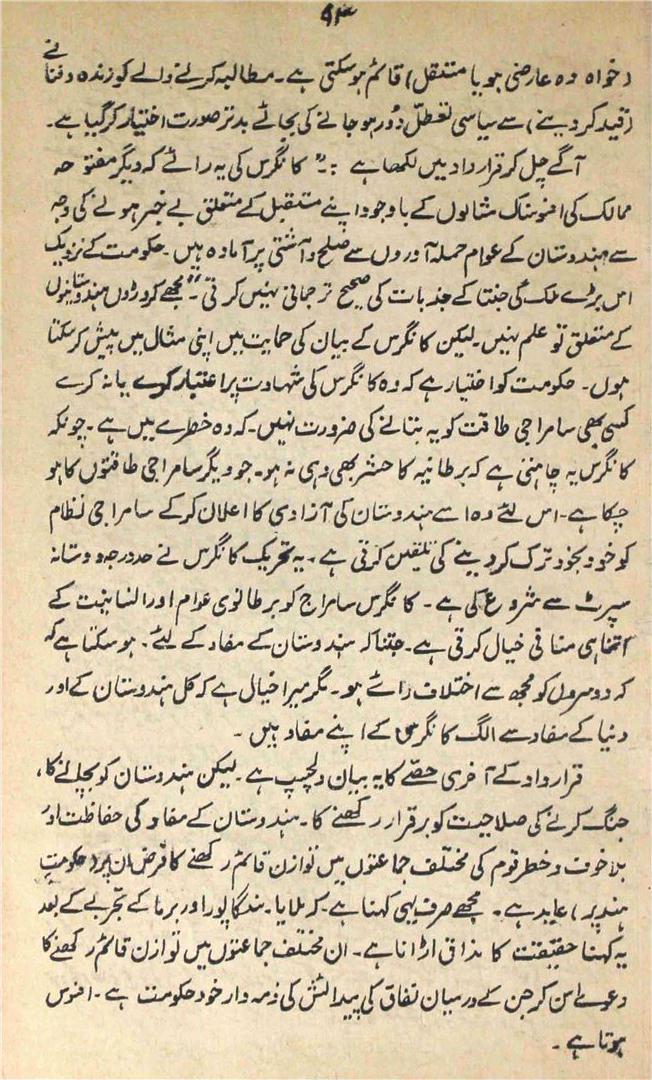 ۹۳
(خواہ وہ عارضی ہو یا مستقل) قائم ہو سکتی ہے۔ مطالبہ کرنے والے کو زندہ دفنانے
(قید کر دینے) سے سیاسی تعطل دُور ہو جانے کی بجائے بدتر صورت اختیار کر گیا ہے۔
آگے چل کر قرارداد میں لکھا ہے :۔ " کانگرس کی یہ رائے کہ دیگر مفتوحہ
ممالک کی افسوسناک مثالوں کے باوجود اپنے مستقبل کے متعلق بے خبر ہونے کی وجہ
سے ہندوستان کے عوام حملہ آوروں سے صلح و آشتی پر آمادہ ہیں۔ حکومت کے نزدیک
اس بڑے ملک کی جنتا کے جذبات کی صحیح ترجمانی نہیں کرتی۔" مجھے کروڑوں ہندوستانیوں
کے متعلق تو علم نہیں۔ لیکن کانگرس کے بیان کی حمایت میں اپنی مثال میں پیش کر سکتا
ہوں۔ حکومت کو اختیار ہے کہ وہ کانگرس کی شہادت پر اعتبار کرے یا نہ کرے
کسی بھی سامراجی طاقت کو یہ بتانے کی ضرورت نہیں۔ کہ وہ خطرے میں ہے۔ چونکہ
کانگرس یہ چاہتی ہے کہ برطانیہ کا حشر بھی وہی نہ ہو۔ جو دیگر سامراجی طاقتوں کا ہو
چکا ہے۔ اس لئے وہ اسے ہندوستان کی آزادی کا اعلان کر کے سامراجی نظام
کو خود بخود ترک کر دینے کی تلقین کرتی ہے۔ یہ تحریک کانگرس نے حد درجہ دوستانہ
سپرٹ سے شروع کی ہے۔ کانگرس سامراج کو برطانوی عوام اور انسانیت کے
اتنا ہی منافی خیال کرتی ہے۔ جتنا کہ ہندوستان کے مفاد کے لئے۔ ہو سکتا ہے کہ
کہ دوسروں کو مجھ سے اختلاف رائے ہو۔ مگر میرا خیال ہے کہ کل ہندوستان کے اور
دنیا کے مفاد سے الگ کانگرس کے اپنے مفاد ہیں۔
قرارداد کے آخری حصے کا یہ بیان دلچسپ ہے۔ لیکن ہندوستان کو بچانے کا،
جنگ کرنے کی صلاحیت کو برقرار رکھنے کا۔ ہندوستان کے مفاد کی حفاظت اور
بلا خوف و خطر قوم کی مختلف جماعتوں میں توازن قائم رکھنے کا فرض ان پر (حکومت
ہند پر) عاید ہے۔ مجھے صرف یہی کہنا ہے۔ کہ ملایا۔ سنگاپور اور برما کے تجربے کے بعد
یہ کہنا حقیقت کا مذاق اڑانا ہے۔ ان مختلف جماعتوں میں توازن قائم رکھنے کا
دعوےٰ سن کر جن کے درمیان نفاق کی پیدائش کی ذمہ دار خود حکومت ہے۔ افسوس
ہوتا ہے۔